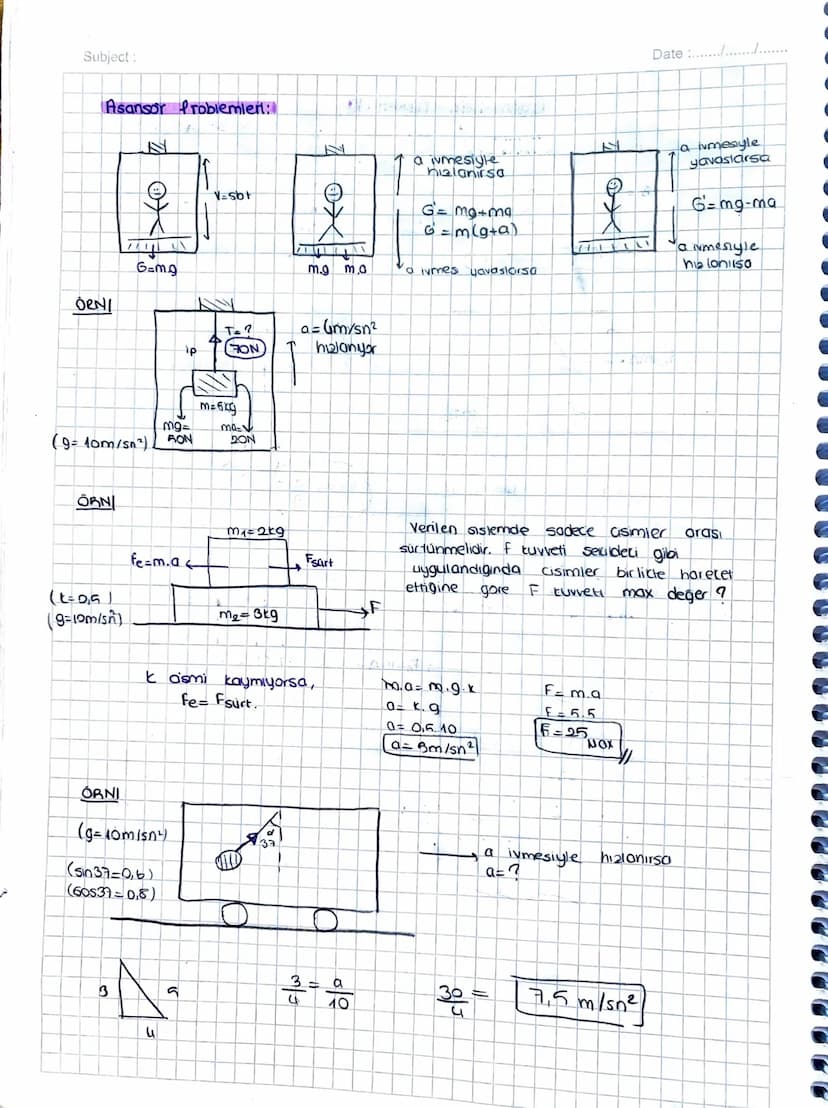 Subject :
Date :......./......./.......
Asansör Problemleri:
V=sbt
G=mg
m.g m.a
a ivmesiyle
hızlanırsa
G'= mg+ma
G'= m(g+a)
a ivmes yavaslarsa
a ivmesiyle
yavaslarsa
G'= mg-ma
a ivmesiyle
hızlanırsa
ÖRN|
T=?
70N
ip
m=5kg
mg=
50N
ma=
20N
(g= 10m/sn²)
hızlanıyor
ÖRN|
m1=2kg
fe=m.a
Fsürt
(k=0,5)
(g=10m/sn²)
m2=3kg
F
Verilen sistemde sadece cisimler arası
sürtünmelidir. F kuvveti sekildeki gibi
uygulandıgında cisimler birlikte hareket
ettigine gore F kuvveti max deger ?
K cismi kaymıyorsa,
Fe= Fsürt.
m.a= m.g.k
a= k.g
a= 0,5.10
a= 5m/sn²
F= m.a
F= 5.5
F=25 max
ÖRN|
(g=10m/sn²)
(sin37=0,6)
(cos37=0,8)
α
37
a ivmesiyle hızlanırsa
a=?
3
5
4
3/4 = a/10
30/4 =
7,5 m/sn²